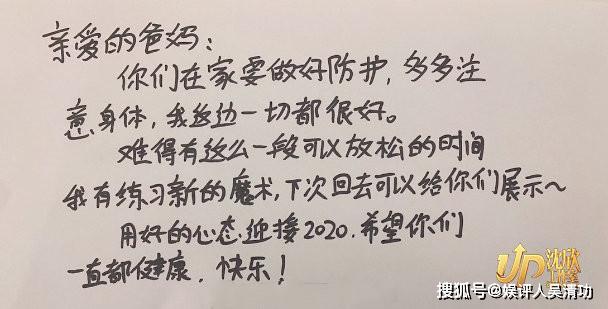 亲爱的爸妈：
你们在家要做好防护，多多注
意身体，我这边一切都很好。
难得有这么一段可以放松的时间
我有练习新的魔术，下次回去可以给你们展示～
用好的心态迎接2020.希望你们
一直都健康，快乐！
UP
沈欣
工作室
搜狐号@娱评人吴清功